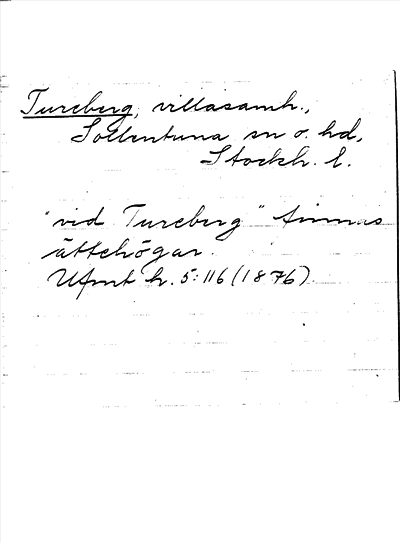 Tureberg, villasamh.,
Sollentuna sn o. hd,
Stockh. l.
"vid Tureberg" finnas
ättehögar.
Ufmt h. 5:116 (1876)